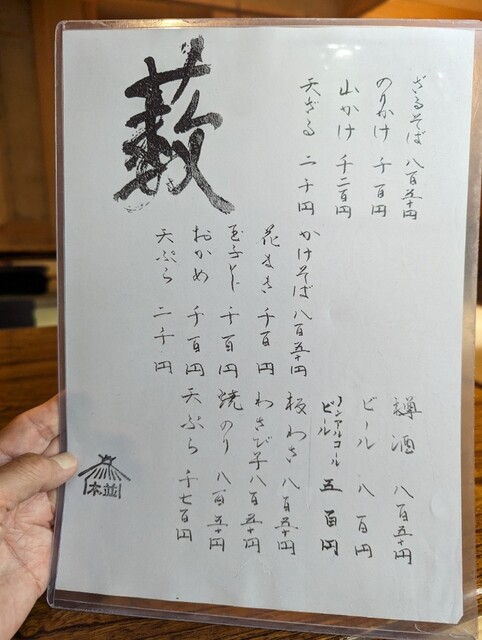 ざるそば 八百五十円
のりかけ 千百円
山かけ 千二百円
天ざる 二千円
藪
かけそば 八百五十円
花まき 千百円
玉子とじ 千百円
おかめ 千百円
天ぷら 二千円
樽酒 八百五十円
ビール 八百円
ノンアルコール
ビール 五百円
板わさ 八百五十円
わさび芋 八百五十円
焼のり 八百五十円
天ぷら 千七百円
並木